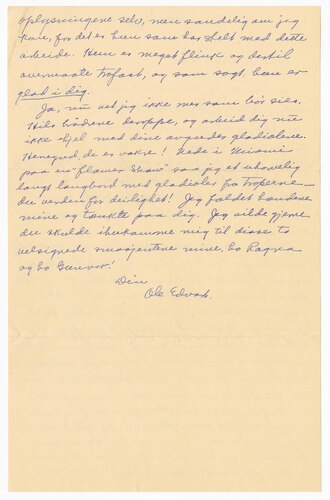 oplysningene selv, men sandelig om jeg
kan, for det er hun som har stelt med dette
arbeide. Hun er meget flink og dertil
overmaate trofast, og som sagt hun er
glad i dig.
Ja, nu vet jeg ikke mer som bör sies.
Hils brödrene deroppe, og arbeid dig nu
ikke ihjel med dine avguder gladiolene.
Herregud, de er vakre! Nede i Miami
paa en "Flower Show" saa jeg et uhorvelig
langt langbord med gladioler fra Troperne –
du verden for deilighet! Jeg foldet hændene
mine og tænkte paa dig. Jeg vilde gjerne
du skulde ihukomme mig til disse to
velsignede smaajentene mine, ho Ragna
og ho Gunvor!
Din
Ole Edvart.